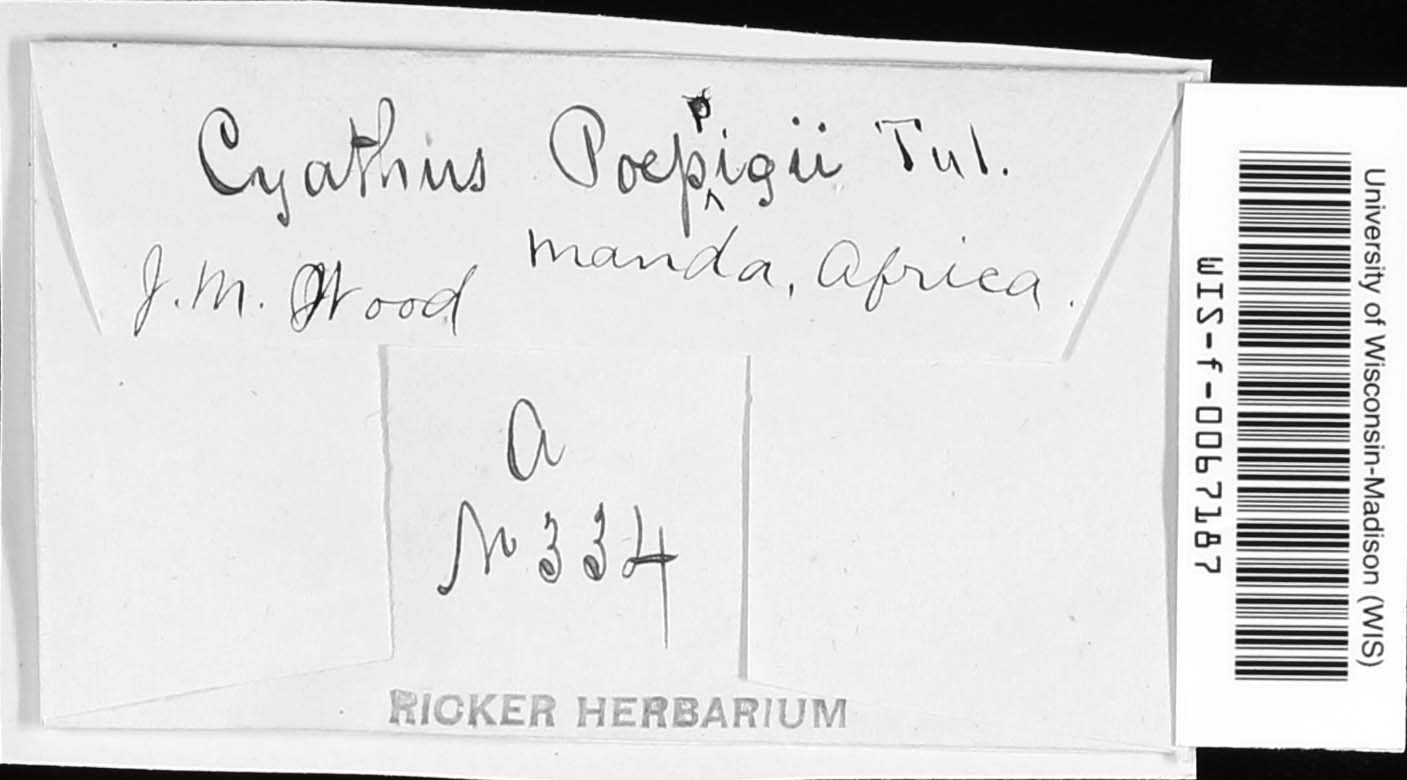 Cyathus Poeppigii Tul.
J. M. Wood
Manda, Africa.
a
No 334
RICKER HERBARIUM
University of Wisconsin-Madison (WIS)
WIS-f-0067187